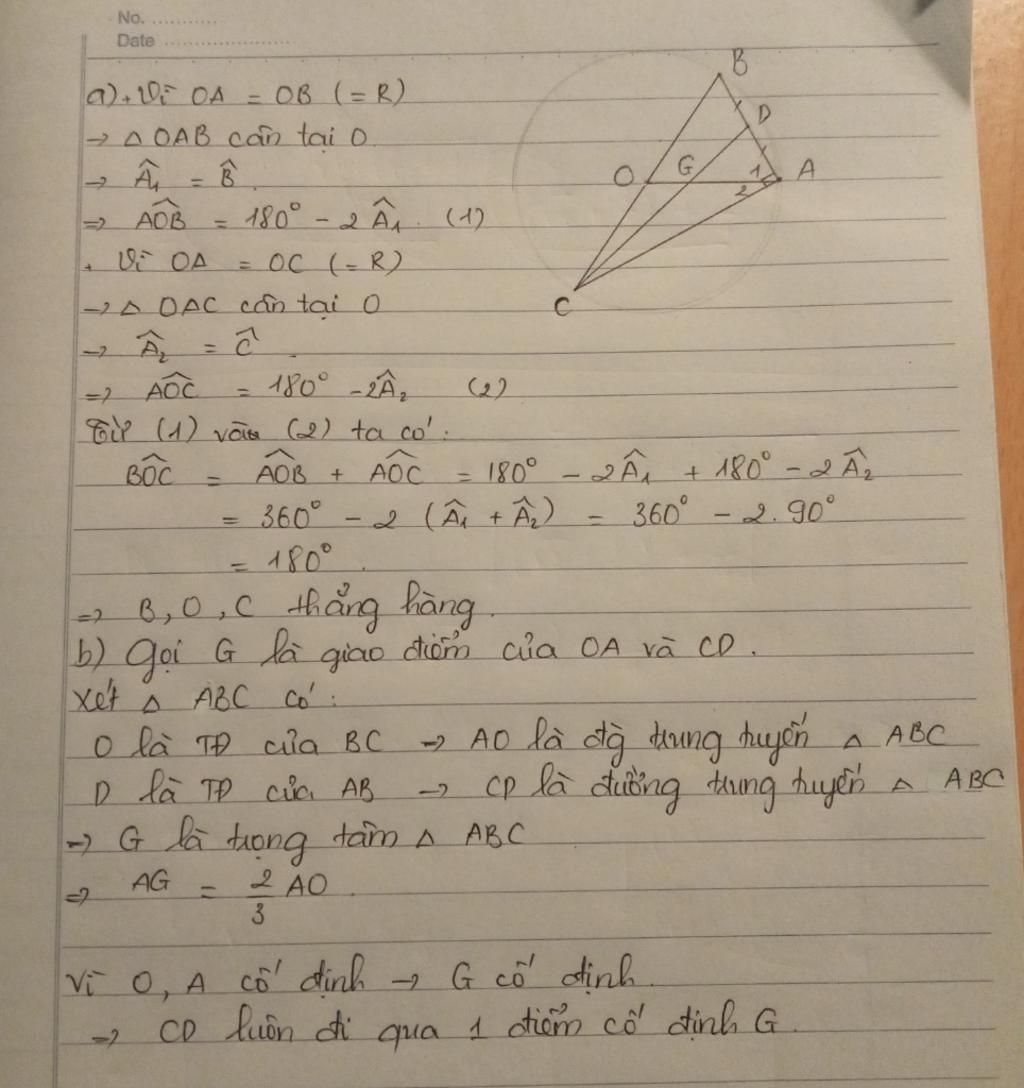 No. ............
Date ........................
a) + Vì OA = OB (= R)
→ △ OAB cân tại O
→ Â₁ = B̂.
⇒ AÔB = 180° - 2Â₁. (1)
+ Vì OA = OC (= R)
→ △ OAC cân tại O
→ Â₂ = Ĉ.
⇒ AÔC = 180° - 2Â₂ (2)
Từ (1) và (2) ta có:
BÔC = AÔB + AÔC = 180° - 2Â₁ + 180° - 2Â₂
= 360° - 2 (Â₁ + Â₂) = 360° - 2.90°
= 180°.
⇒ B, O, C thẳng hàng.
b) Gọi G là giao điểm của OA và CD.
Xét △ ABC có:
O là TĐ của BC → AO là đg trung tuyến △ ABC
D là TĐ của AB → CD là đường trung tuyến △ ABC
→ G là trọng tâm △ ABC
⇒ AG = 2/3 AO.
Vì O, A cố định → G cố định.
→ CD luôn đi qua 1 điểm cố định G.
B
D
O G 1 A
2
C